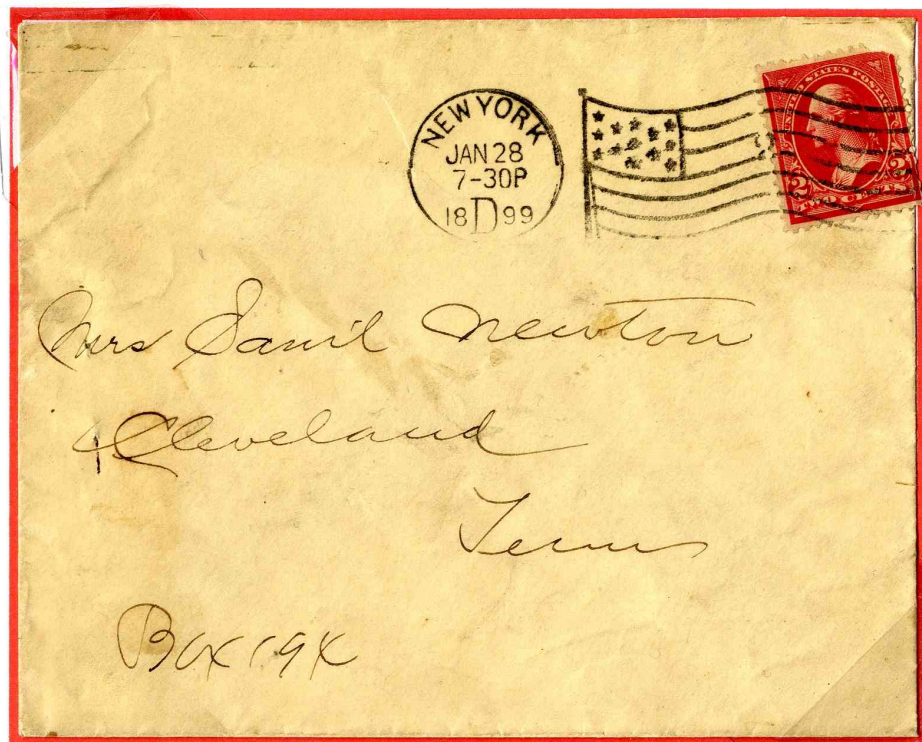 NEW YORK
JAN 28
7-30P
18 D 99
UNITED STATES POSTAGE
2 2
TWO CENTS
Mrs Saml Newton
Cleveland
Tenn
Box 194